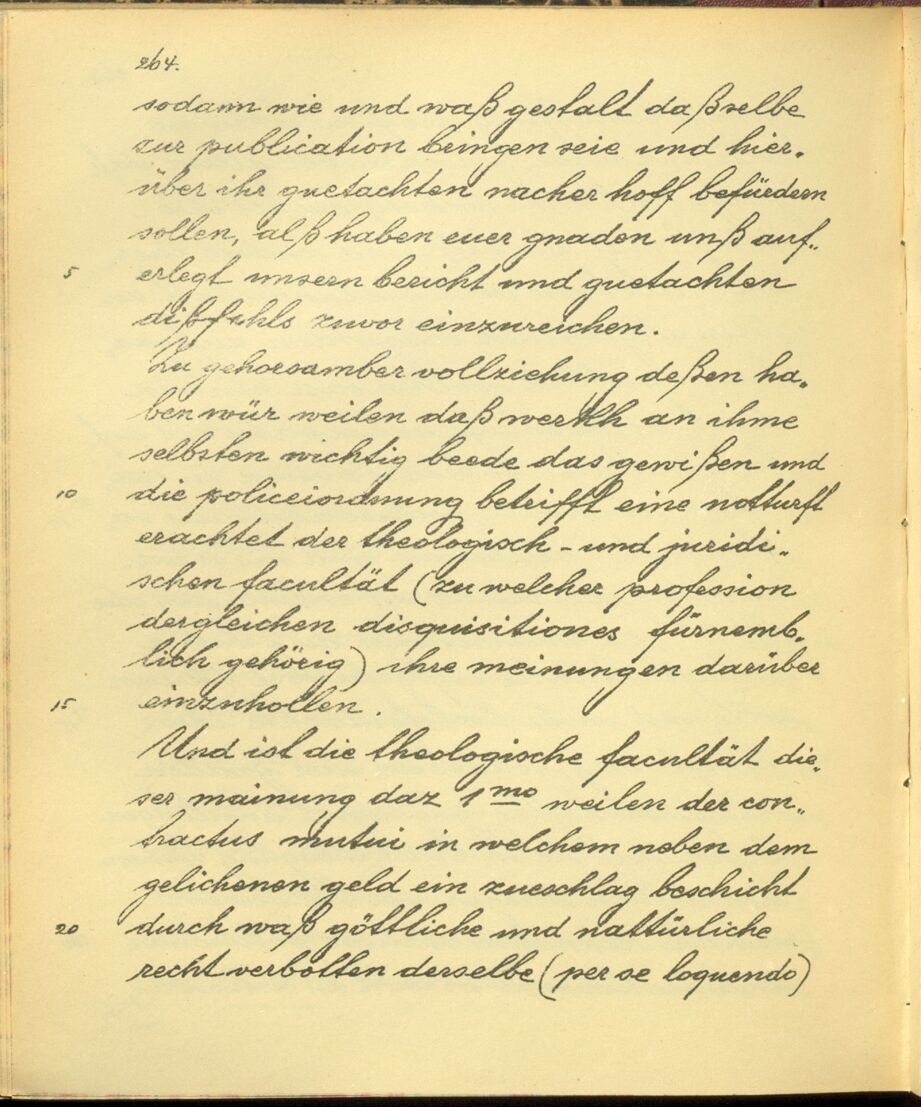 264.
sodann wie und waß gestalt daßselbe
zur publication bringen seie und hier„
über ihr guetachten nacher hoff befürdern
sollen, alß haben euer gnaden unß auf„
5 erlegt unsern bericht und guetachten
dißfahls zuvor einzureichen.
Zu gehorsamber vollziehung deßen ha„
ben wür weilen daß werkh an ihme
selbsten wichtig beede das gewißen und
10 die policeiordnung betrifft eine notturft
erachtet der theologisch - und juridi„
schen facultät (zu welcher profession
dergleichen disquisitiones fürnemb„
lich gehörig) ihre meinungen darüber
15 einzuhollen.
Und ist die theologische facultät die„
ser mainung daz 1mo weilen der con„
tractus mutui in welchem neben dem
gelichenen geld ein zueschlag beschicht
20 durch waß göttliche und nattürliche
recht verbotten derselbe (per se loquendo)